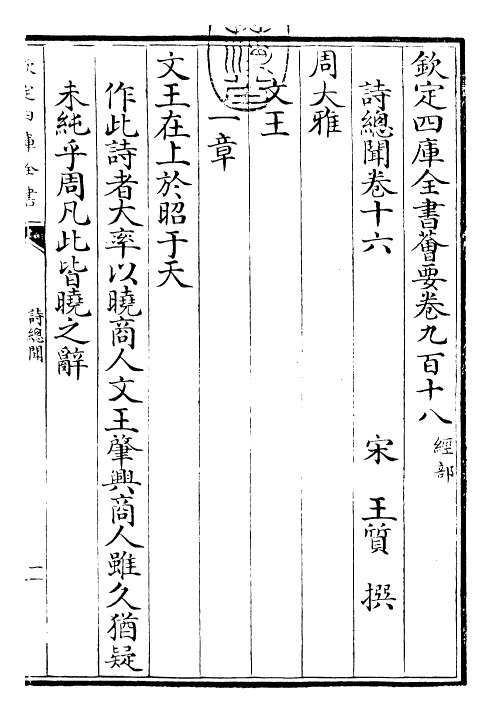 欽定四庫全書薈要卷九百十八 經部
詩總聞卷十六 宋 王質 撰
周大雅
文王
一章
文王在上於昭于天
作此詩者大率以曉商人文王肇興商人雖久猶疑
未純乎周凡此皆曉之辭
欽定四庫全書
詩總聞